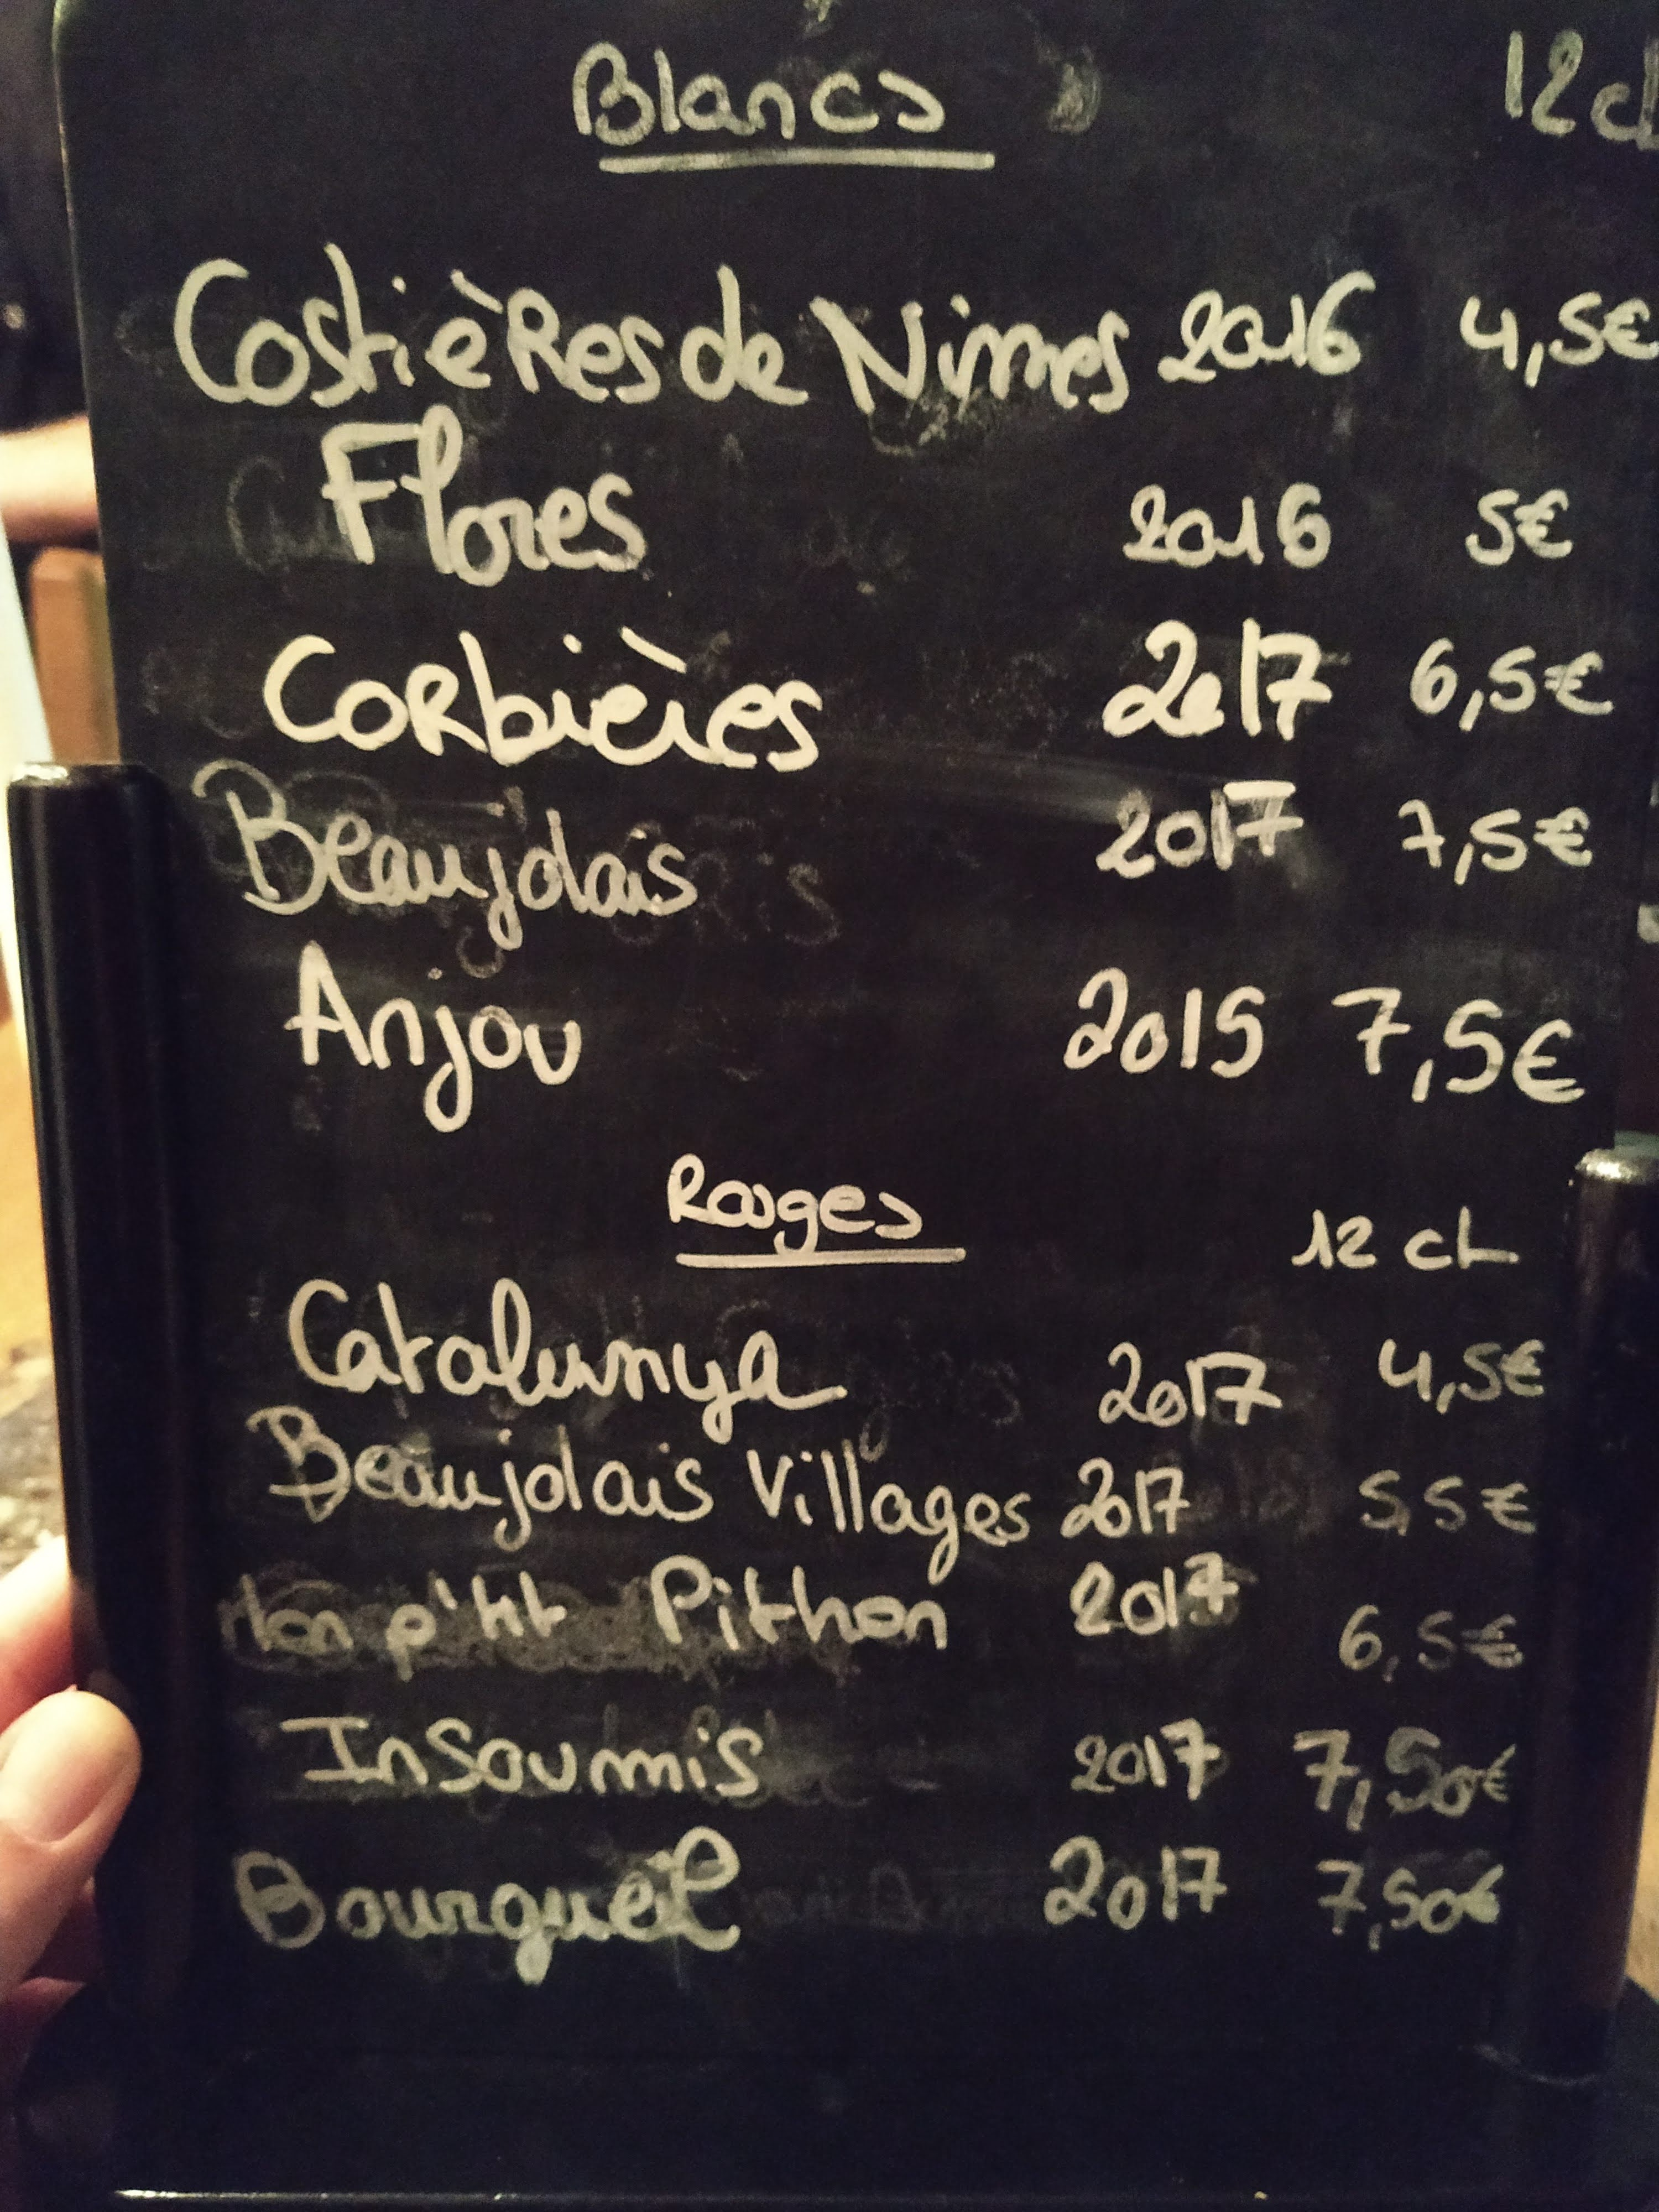 Blancs 12cl
Costières de Nimes 2016 4,5€
Flores 2016 5€
Corbières 2017 6,5€
Beaujolais 2017 7,5€
Anjou 2015 7,5€
Rouges 12 cL
Catalunya 2017 4,5€
Beaujolais Villages 2017 5,5€
Mon p'tit Pithon 2017 6,5€
Insoumis 2017 7,50€
Bourgueil 2017 7,50€